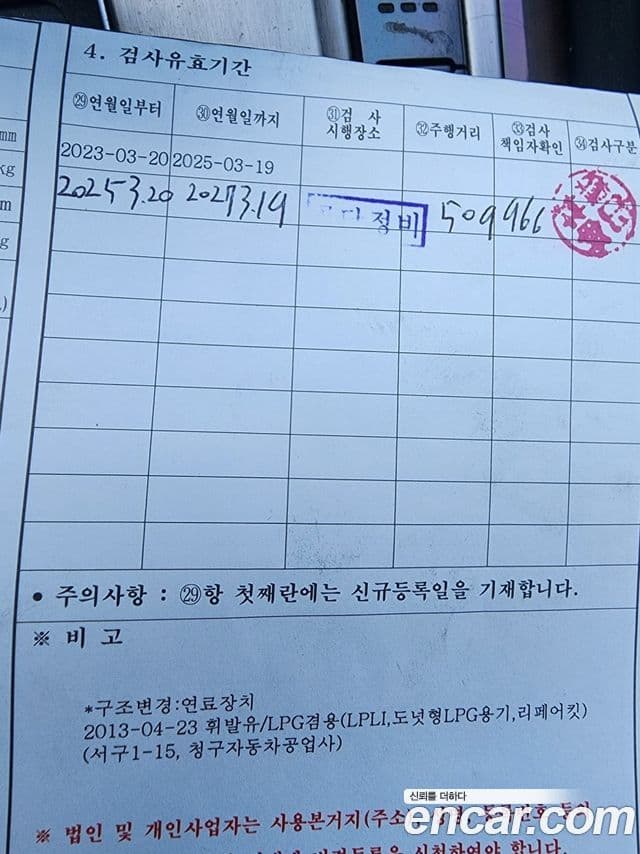 4. 검사유효기간
㉙연월일부터 ㉚연월일까지 ㉛검 사 시행장소 ㉜주행거리 ㉝검사 책임자확인 ㉞검사구분
2023-03-20 2025-03-19
2025 3.20 2027 3.19 정비 509966
mm
kg
m
g
● 주의사항 : ㉙항 첫째란에는 신규등록일을 기재합니다.
※ 비 고
*구조변경:연료장치
2013-04-23 휘발유/LPG겸용(LPLI,도넛형LPG용기,리페어킷)
(서구1-15, 청구자동차공업사)
신뢰를 더하다
encar.com
※ 법인 및 개인사업자는 사용본거지(주소